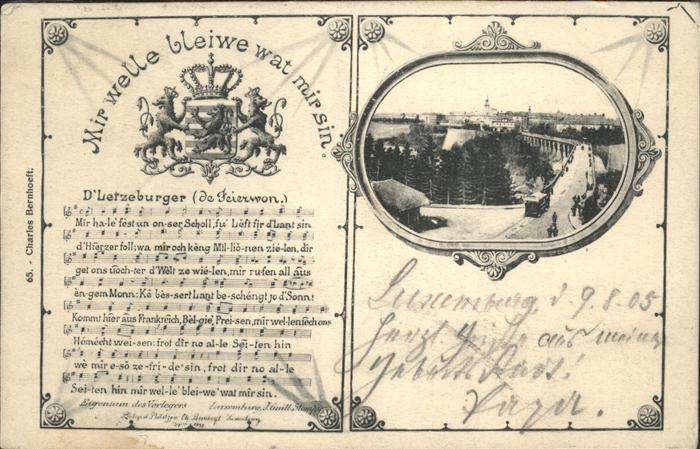 Mir welle bleiwe wat mir sin.
D'Letzeburger (de Feierwon.)
Mir ha-le fest un on-ser Scholl, fu' Léft fir d'Lant sin
d'Hierzer foll; wa mir och kèng Mil-liô-nen zie-len, dir
get ons uôch-ter d'Welt ze wié-len, mir rufen all aus
èn-gem Monn: Kê bès-sert Lant be-schéngt jo d'Sonn!
Kommt hier aus Frankreich, Bel-gie, Prei-sen, mir wel-len iech ons
Hémécht wei-sen: frot dir no al-le Sei-ten hin
wé mir e-sô ze-fri-de' sin, frot dir no al-le
Sei-ten hin mir wel-le' blei-we' wat mir sin.
Eigentum des Verlegers
65. - Charles Bernhoeft.
Luxemburg d. 9.8.05
Herzl. aus meiner
Geburtsstadt!
Papa.